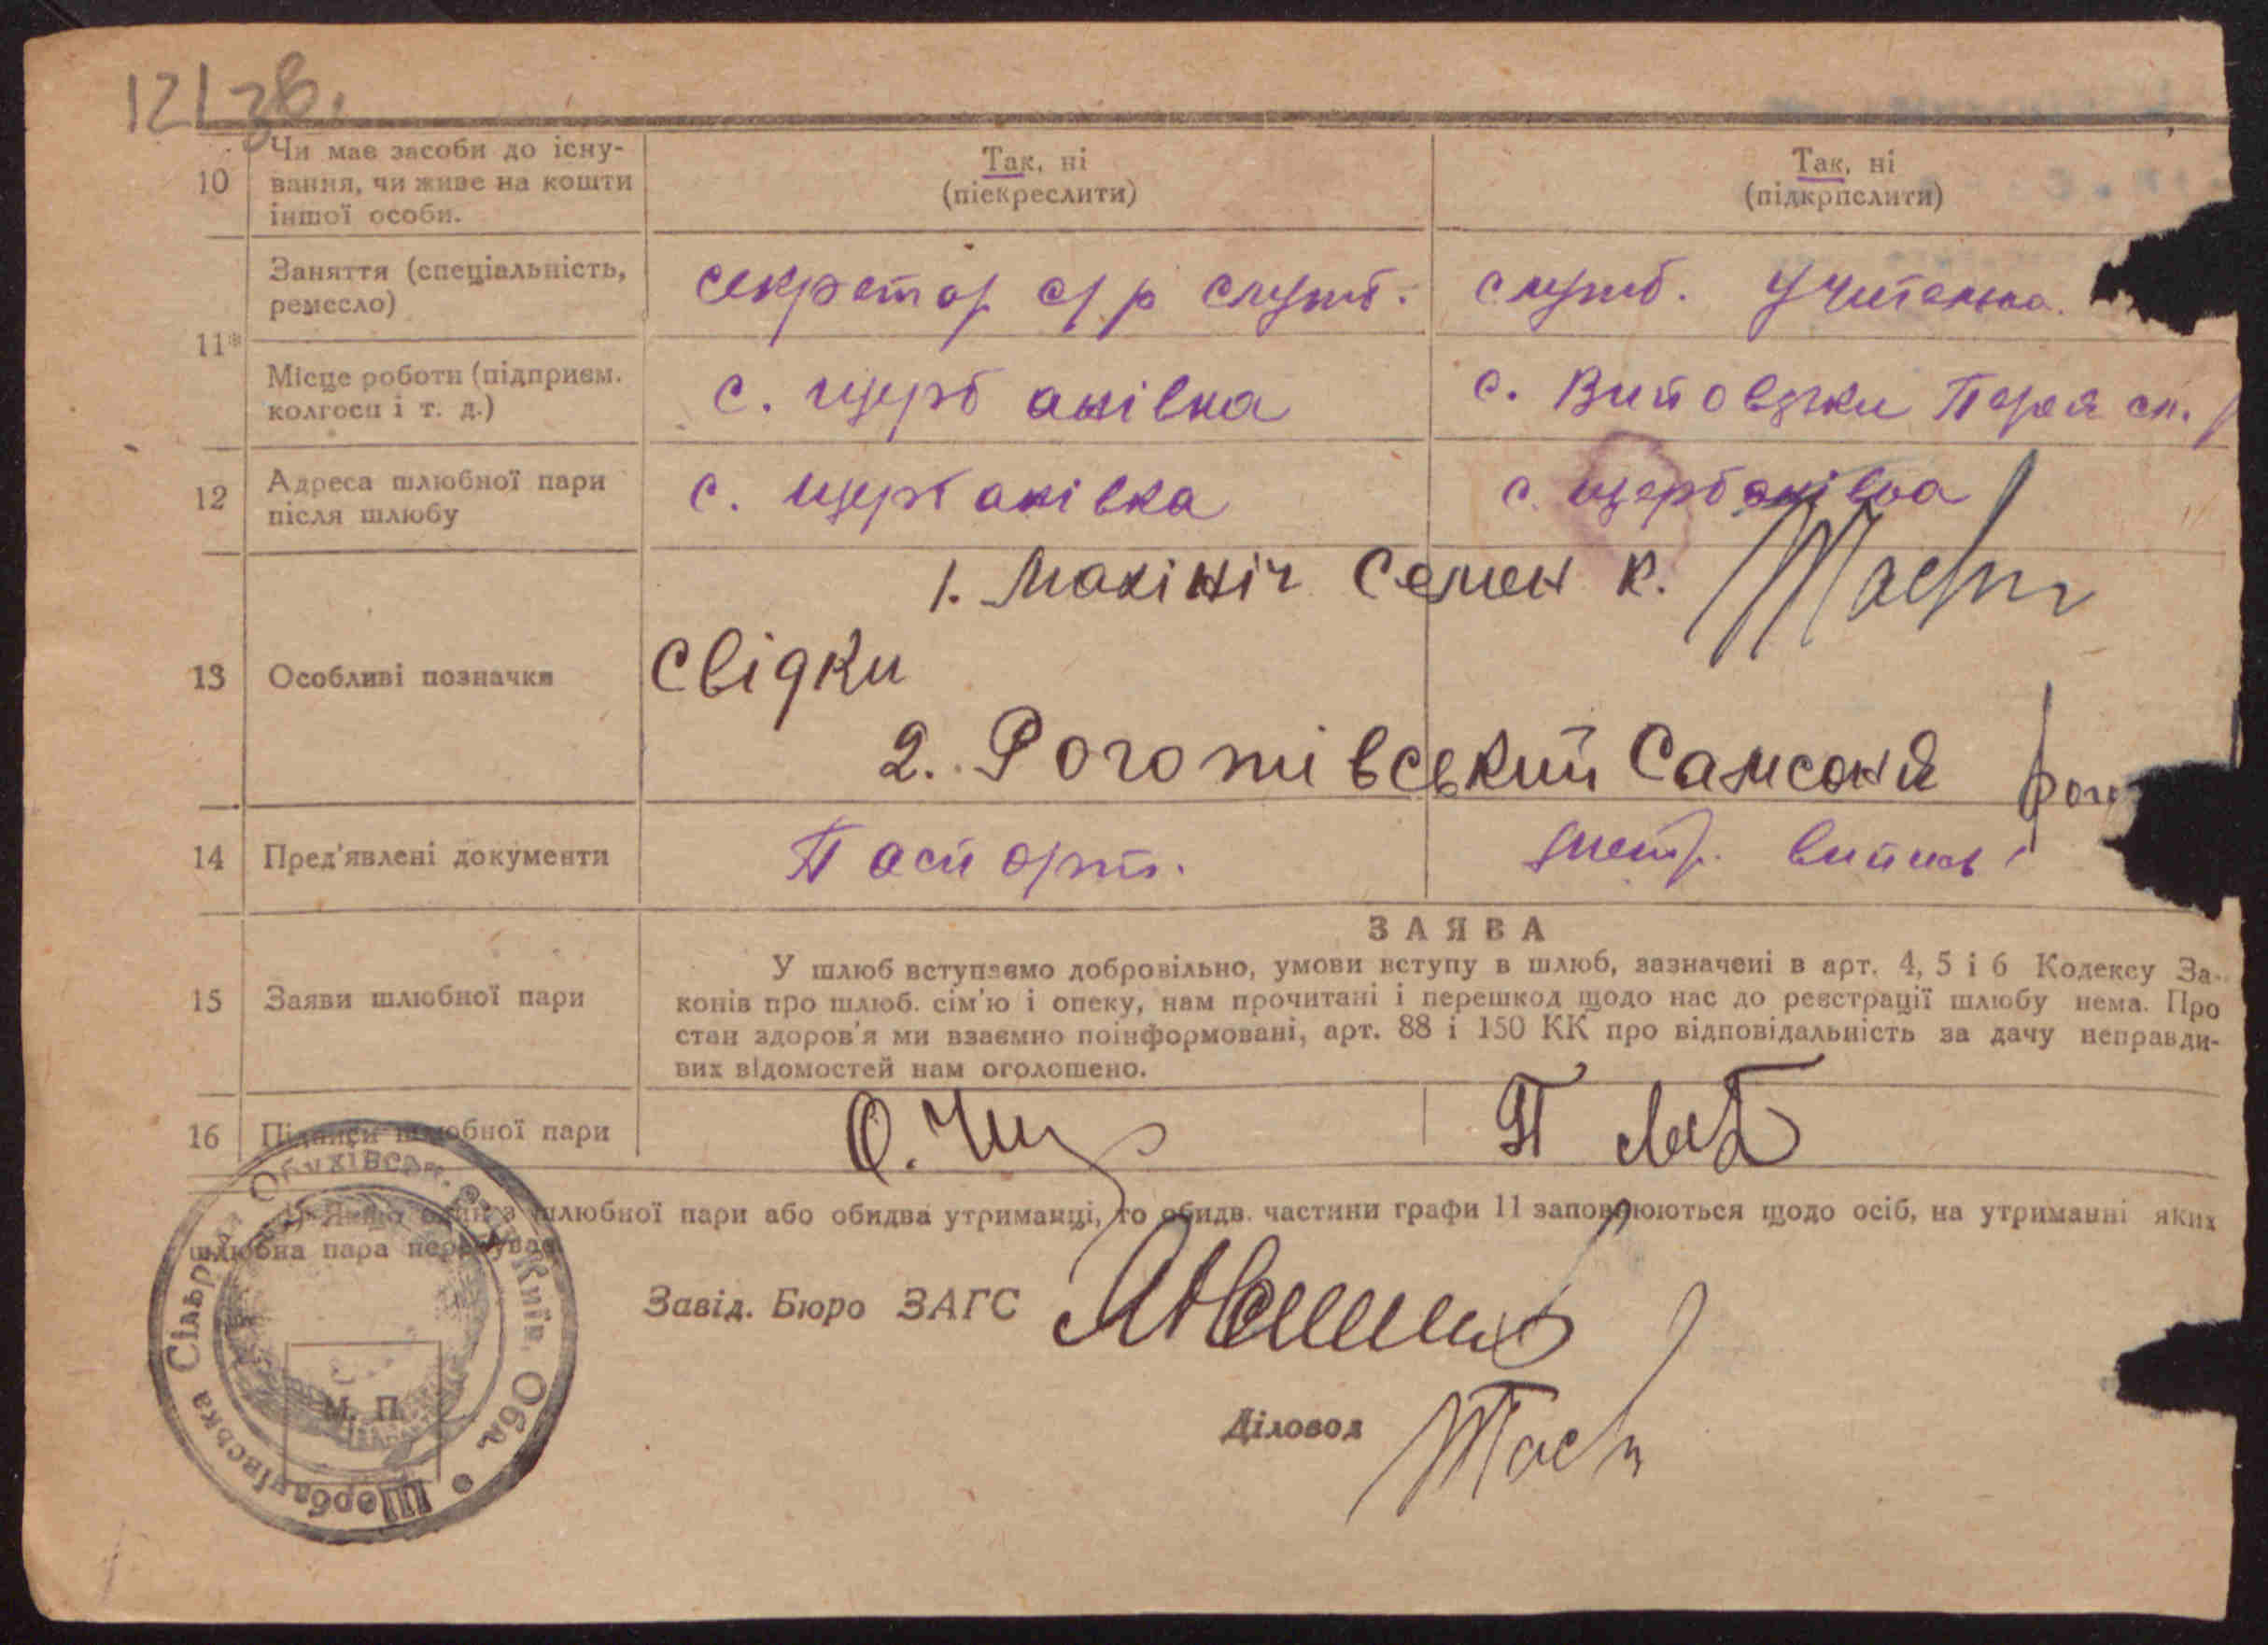 121 зв.
10 Чи має засоби до існу-
вання, чи живе на кошти
іншої особи.
Так, ні
(піекреслити)
Так, ні
(підкрпслити)
11*
Заняття (спеціальність,
ремесло)
секретар с/р служб.
служб. учителька.
Місце роботи (підприєм.
колгосп і т. д.)
с. Щербанівка
с. Витовцки
12 Адреса шлюбної пари
після шлюбу
с. Щербанівка
с. Щербанівка
13 Особливі позначки
1. Махініч Семен К.
Свідки
2. Роготівський Самсон Я
14 Пред'явлені документи
Паспорт.
метр. випись
ЗАЯВА
15 Заяви шлюбної пари
У шлюб вступаємо добровільно, умови вступу в шлюб, зазначені в арт. 4, 5 і 6 Кодексу За-
конів про шлюб. сім'ю і опеку, нам прочитані і перешкод щодо нас до реєстрації шлюбу нема. Про
стан здоров'я ми взаємно поінформовані, арт. 88 і 150 КК про відповідальність за дачу неправди-
вих відомостей нам оголошено.
16 Підписи шлюбної пари
*) Якщо один з шлюбної пари або обидва утриманці, то обидв. частини графи 11 заповнюються щодо осіб, на утриманні яких
шлюбна пара перебуває
Завід. Бюро ЗАГС
Діловод
М. П.
Щербанівська Сільрада Обухівськ. Київ. Обл.